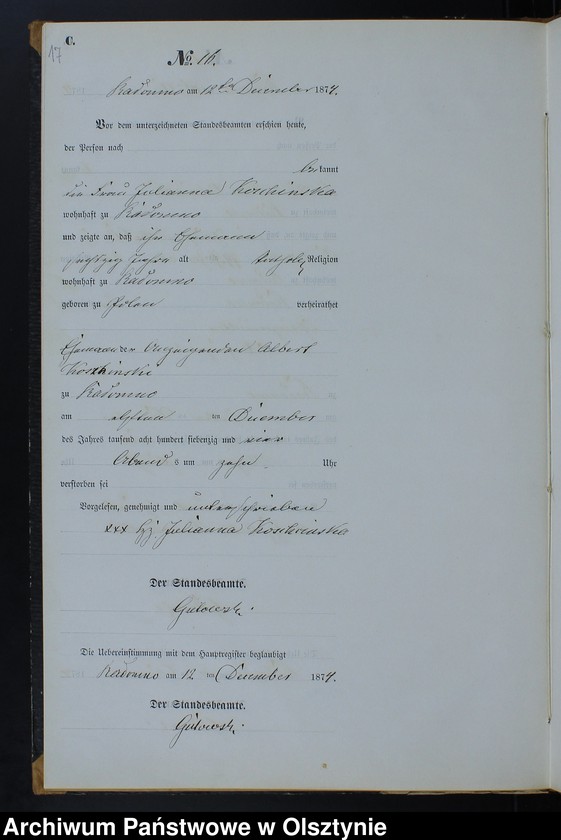 C.
17
No. 16.
Radomno am 12ten December 1874.
Vor dem unterzeichneten Standesbeamten erschien heute,
der Person nach
bekannt
die Frau Julianna Koschinska
wohnhaft zu Radomno
und zeigte an, daß ihr Ehemann
sechszig Jahre alt kathol. Religion
wohnhaft zu Radomno
geboren zu Polen verheirathet
Ehemann der Anzeigenden Albert
Koschinski
zu Radomno
am elften ten December
des Jahres tausend acht hundert siebenzig und vier
Abends um zehn Uhr
verstorben sei
Vorgelesen, genehmigt und unterschrieben
xxx hz Julianna Koschinska
Der Standesbeamte.
Gutowski.
Die Uebereinstimmung mit dem Hauptregister beglaubigt
Radomno am 12 ten December 1874.
Der Standesbeamte.
Gutowski.
Archiwum Państwowe w Olsztynie